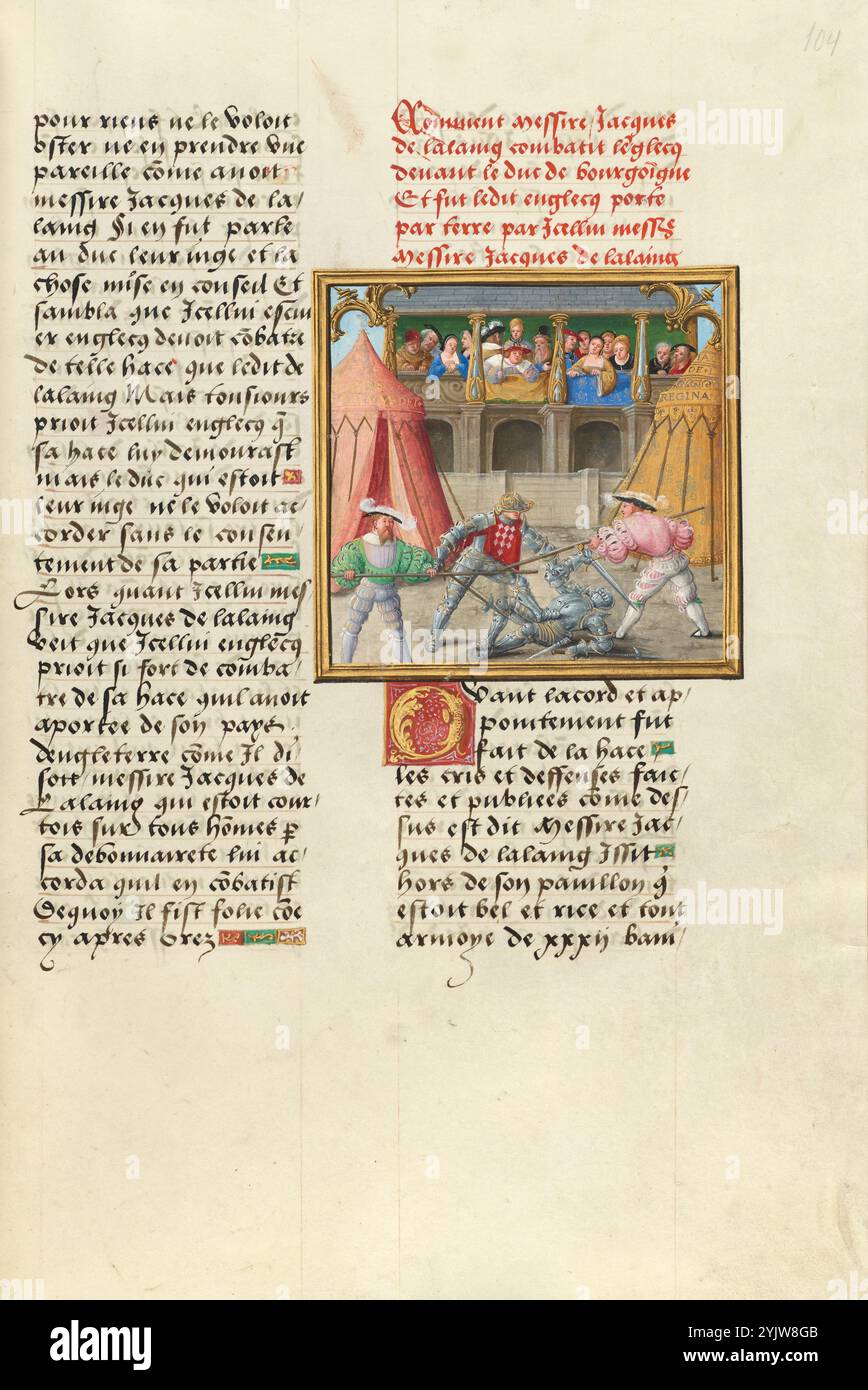 104
pour riens ne le voloit
oster ne en prendre une
pareille cōme avoit
messire Jacques de la
laing Si en fut parle
au duc leur iuge et la
chose mise en conseil Et
sambla que Icellui escui
er englecq devoit cōbatre
de telle hace que ledit de
lalaing Mais tousiours
prioit Icellui englecq q̄
sa hace luy demourast
mais le duc qui estoit
leur iuge ne le voloit ac/
corder sans le consen/
tement de sa partie
Lors quant Icellui mes/
sire Jacques de lalaing
veit que Icellui englecq
prioit si fort de comba/
tre de sa hace quil avoit
aportee de son pays
dengleterre cōme Il di/
soit messire Jacques de
Lalaing qui estoit cour/
tois sur tous hōmes p
sa debonnairete lui ac/
corda quil en cōbatist
Dequoy Il fist folie cōe
cy apres Orez
Comment messire Jacques
de lalaing combatit lenglecq
devant le duc de bourgoigne
Et fut ledit englecq porte
par terre par Icellui
messire Jacques de lalaing
REGINA
Avant lacord et ap/
pointement fut
fait de la hace
les cris et deffenses faic/
tes et publiees cōme des/
sus est dit Messire Jac/
ques de lalaing Issit
hors de son pavillon q̄
estoit bel et rice et tout
armoye de xxxij bani/
alamy
Image ID: 2YJW8GB
www.alamy.com